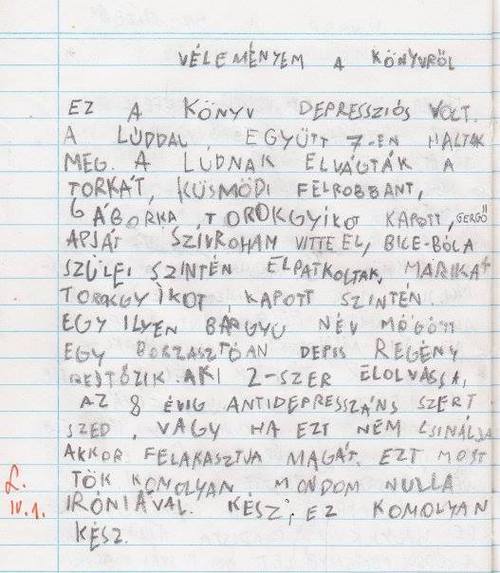 VÉLEMÉNYEM A KÖNYVRŐL
EZ A KÖNYV DEPRESSZIÓS VOLT.
A LÚDDAL EGYÜTT 7-EN HALTAK
MEG. A LÚDNAK ELVÁGTÁK A
TORKÁT, KÜSMÖDI FELROBBANT,
GÁBORKA TOROKGYÍKOT KAPOTT, GERGŐ
APJÁT SZÍVROHAM VITTE EL, BICE-BÓCA
SZÜLEI SZINTÉN ELPATKOLTAK, MARIKA
TOROKGYÍKOT KAPOTT SZINTÉN.
EGY ILYEN BÁRGYÚ NÉV MÖGÖTT
EGY BORZASZTÓAN DEPIS REGÉNY
REJTŐZIK. AKI 2-SZER ELOLVASSA,
AZ 8 ÉVIG ANTIDEPRESSZÁNS SZERT
SZED, VAGY HA EZT NEM CSINÁLJA
AKKOR FELAKASZTJA MAGÁT. EZT MOST
TÖK KOMOLYAN MONDOM NULLA
IRÓNIÁVAL. KÉSZ, EZ KOMOLYAN
KÉSZ.
L.
IV.1.